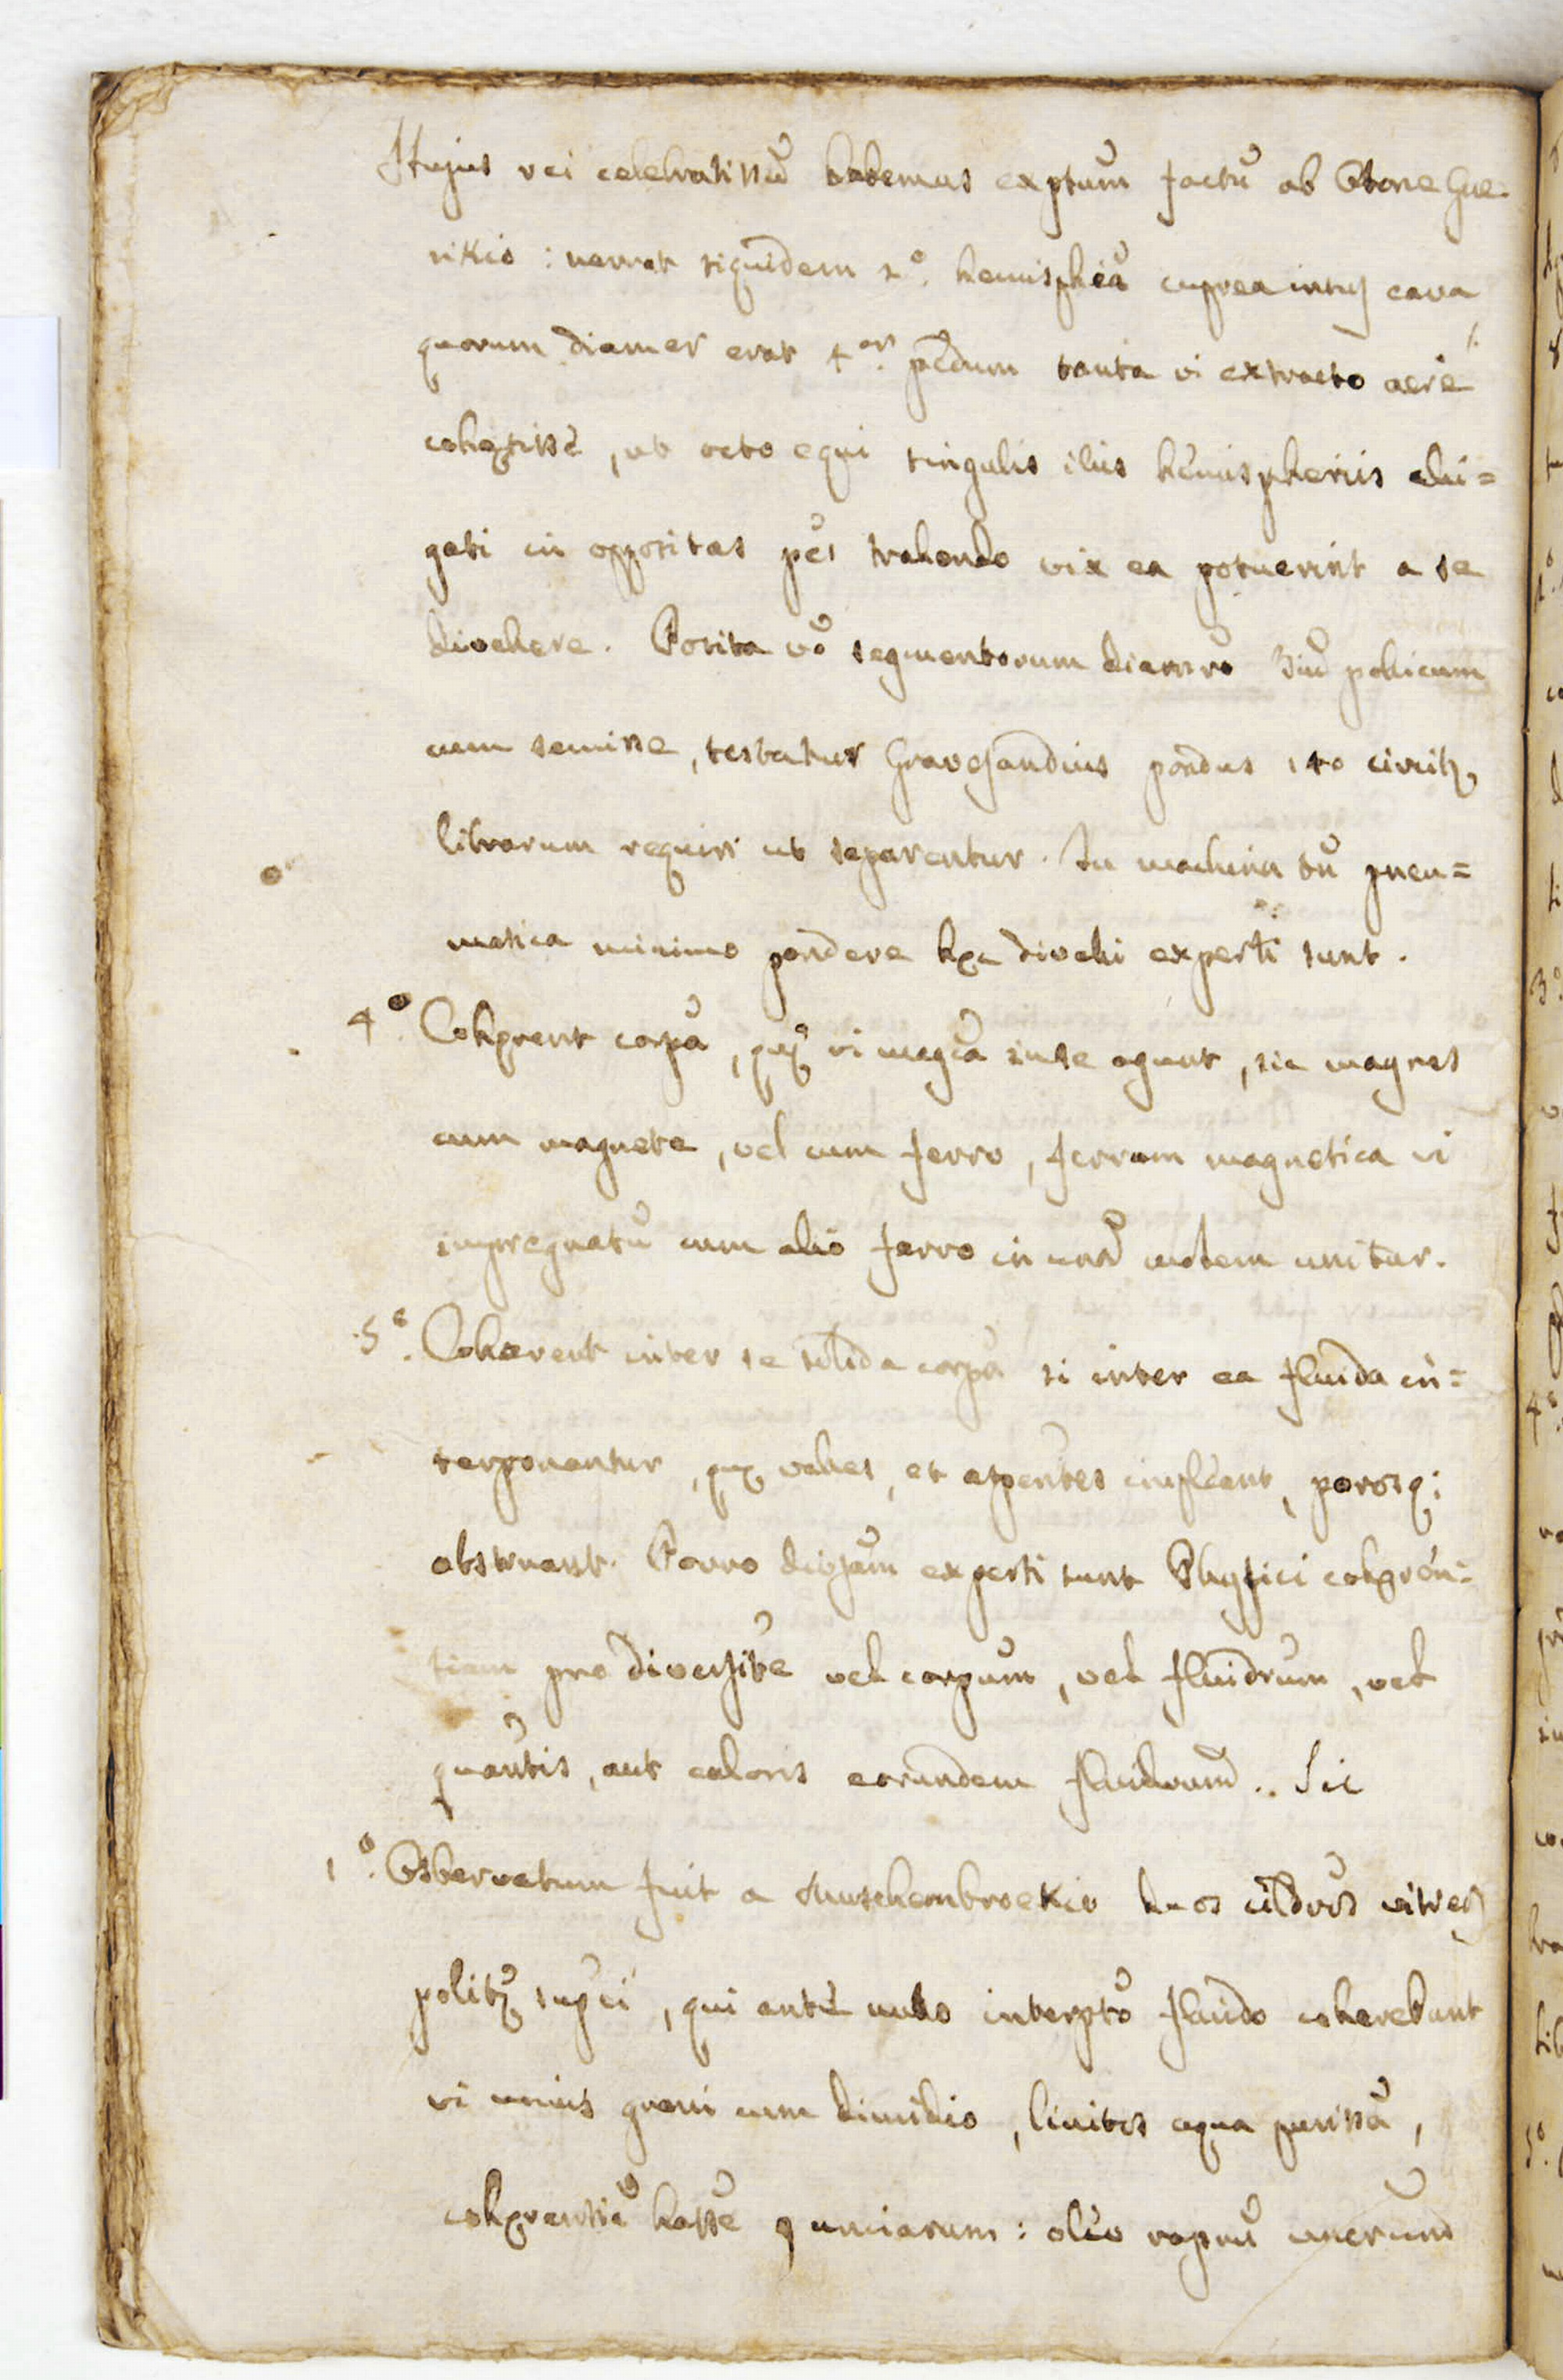 Hujus rei celebratissũ habemus exptũm factũ ab Otone Gue-
rikio : narrat siquidem 2º. hemispheã cuprea intus cava
quorum diamer erat 4or. pedum tanta vi extracto aere
cohæsisse, ut octo equi singulis iliis hemispheriis alli=
gati in oppositas pẽs trahendo vix ea potuerint a se
divehere. Posita võ segmentorum diamrõ 3iũ pollicum
cum semisse, testatur Gravesandius pondus 140 circit,
librarum requiri ut separentur. In machina tñ pneu=
matica minimo pondere hæc divelli experti sunt.
4º. Cohærent corpã, quæ vi magcã in se agunt, sic magnes
cum magnete, vel cum ferro, ferrum magnetica vi
impregnatũ cum alio ferro in unã molem unitur.
5º. Cohærent inter se solida corpã si inter ea fluida in=
terponantur, quæ valles, et aspentes impleant, porosq;
obstruant. Porro disjam experti sunt Physici cohæren=
tiam pro diversite vel corpũm, vel fluidrũm, vel
quantis, aut caloris eorundem fluidorum.. Sic
1º. Observatum fuit a Muschembroekio duos cildros vitreos
politæ supei, qui antè nullo interptõ fluido coherebant
vi unius grani cum dimidio, linitos aqua purissã,
cohærentiã hasse 9 unciarum : oleo rapmũ